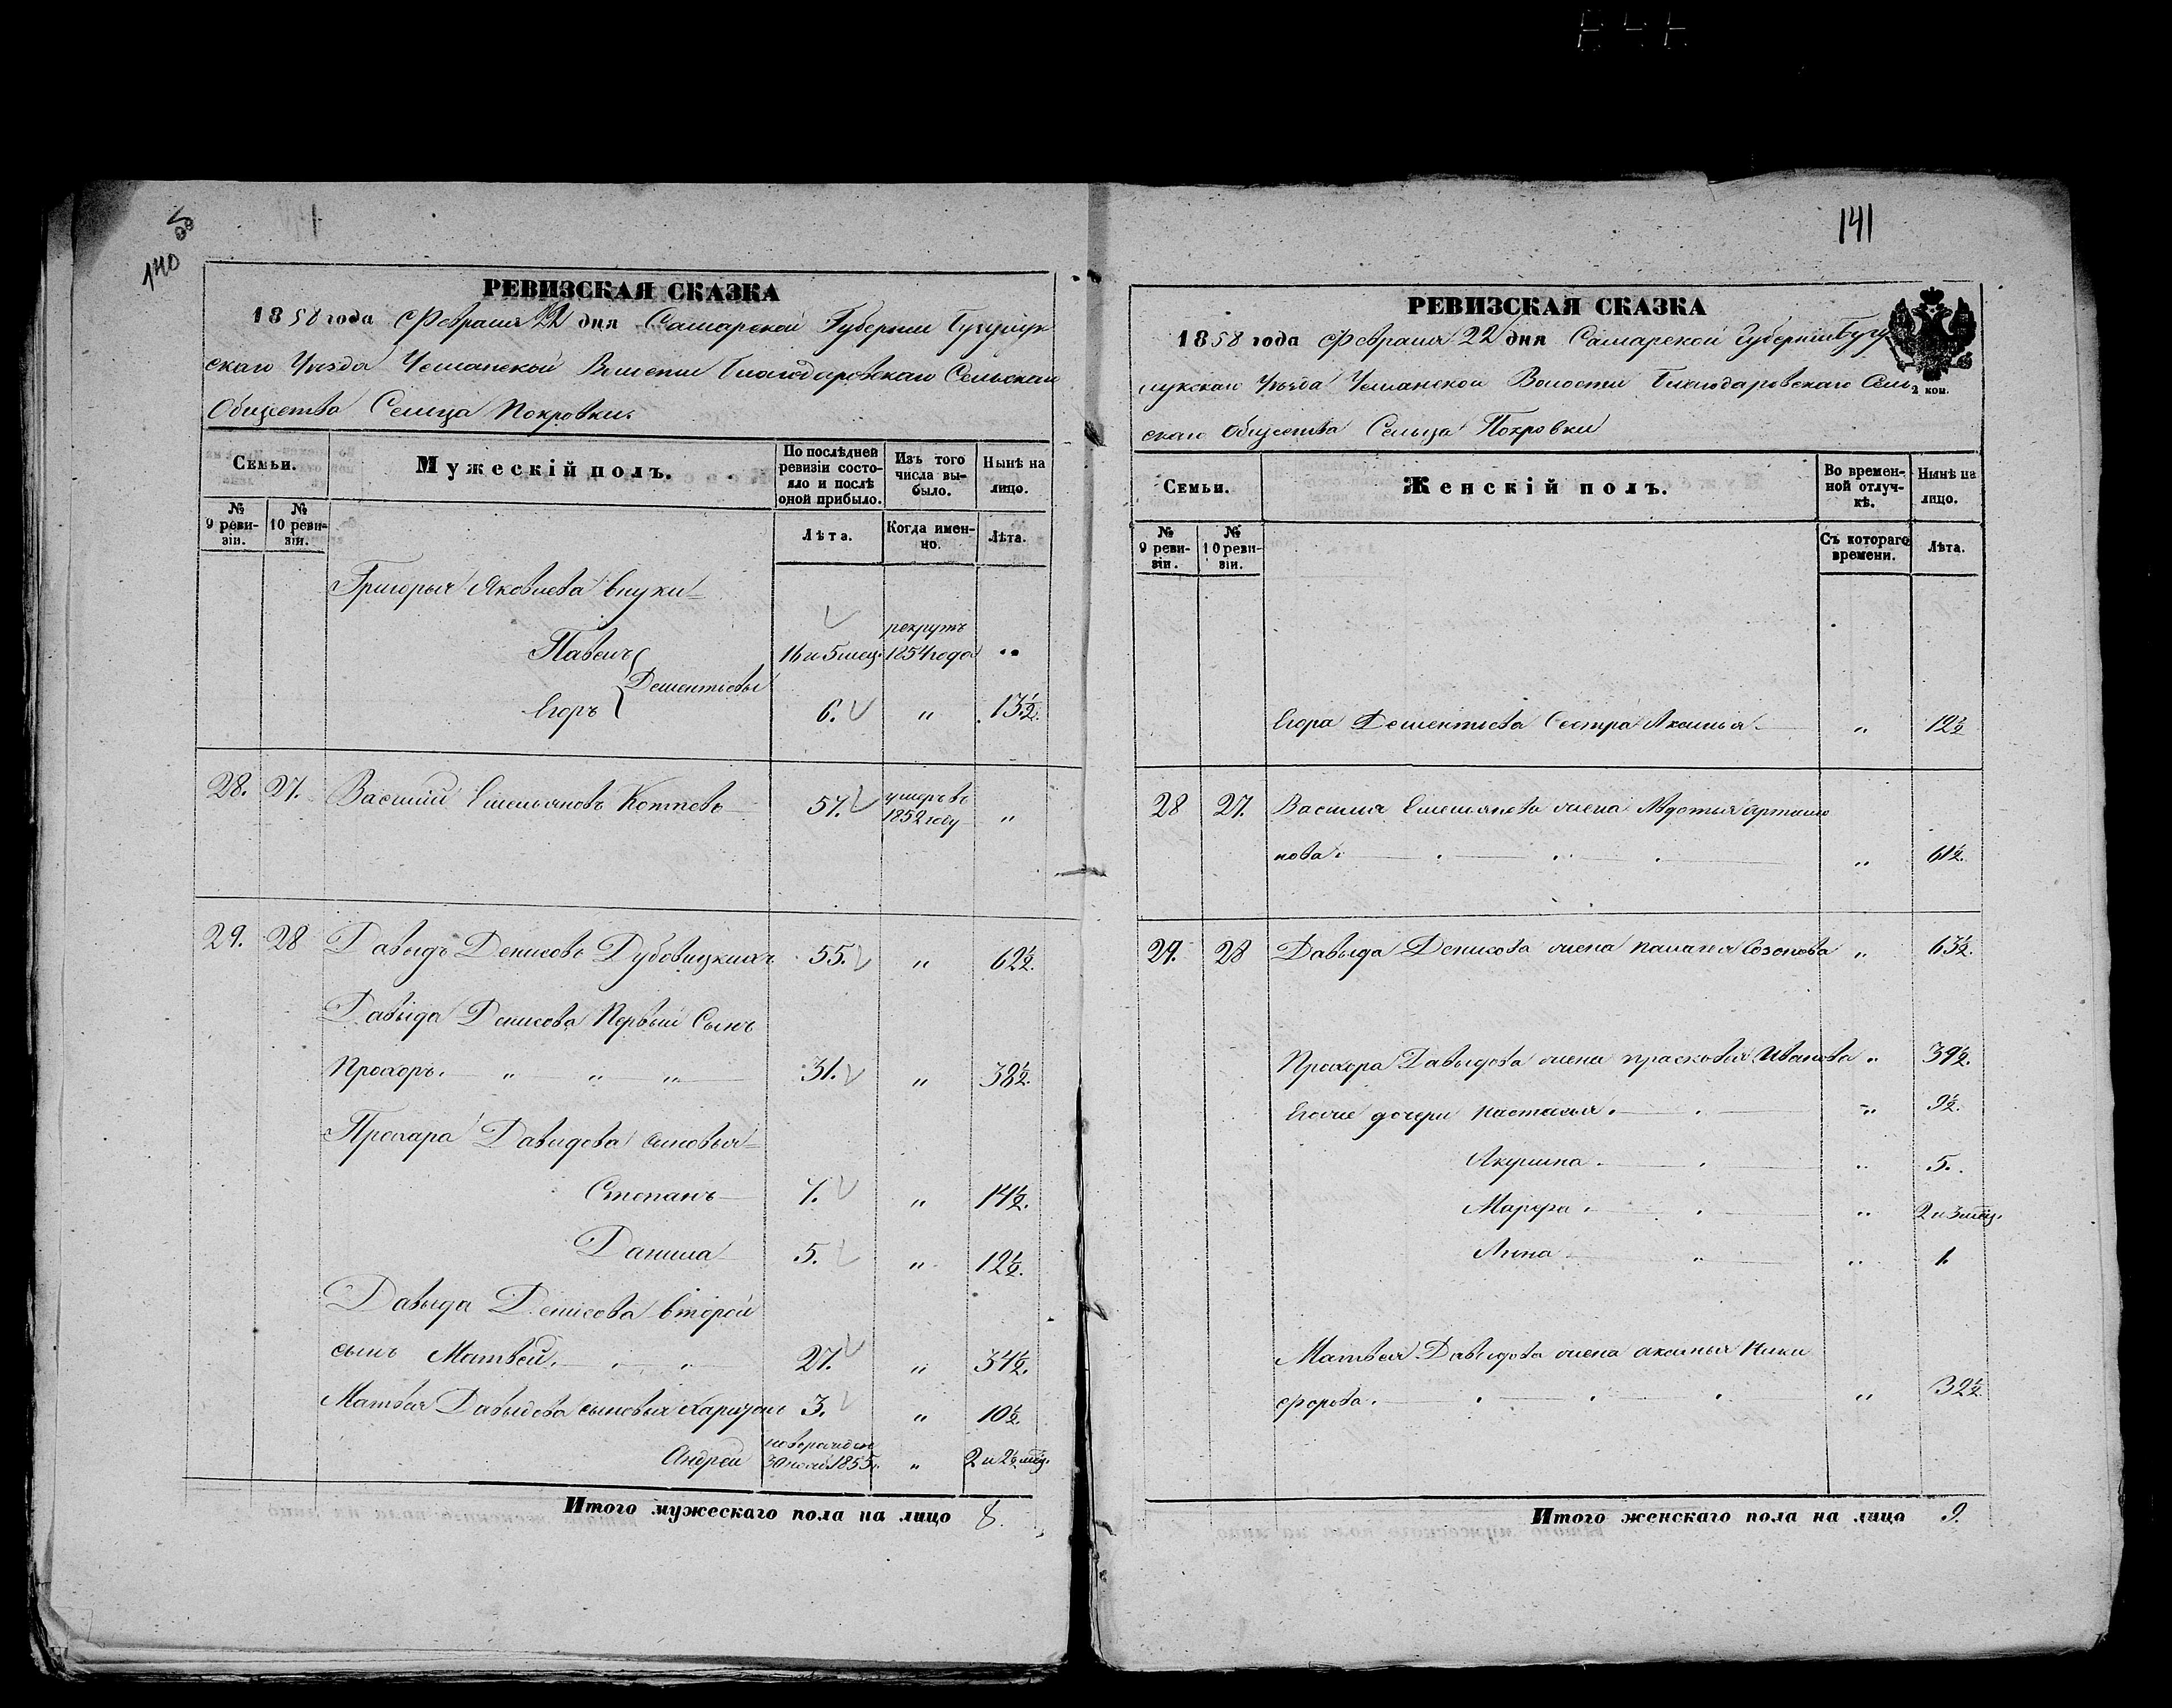 141
140
РЕВИЗСКАЯ СКАЗКА
1858 года Февраля 22 дня Самарской Губернии Бугурук
скаго Уѣзда Волости Благодаровскаго Сельскаго
Общества Сельца Покровки.
Семьи.
Мужескій полъ.
По послѣдней ревизіи состояло и послѣ оной прибыло.
Изъ того числа выбыло.
Нынѣ на лицо.
№ 9 ревизіи.
№ 10 ревизіи.
Лѣта.
Когда именно.
Лѣта.
Григорья Яковлева внуки
Павелъ 16 и 5 мец. рекрутъ 1854 года "
Дементьевы
Егоръ 6. " 13½.
28. 27. Василій Емельяновъ 57. умеръ въ 1852 году "
29. 28 Давыдъ Денисовъ Дубовицкихъ 55. " 62½.
Давыда Денисова Первый Сынъ
Прохоръ. " " " 31. " 38½.
Прохора Давыдова сыновья
Степанъ 7. " 14½.
Данила 5. " 12½.
Давыда Денисова второй
сынъ Матвей. 27. " 34½.
Матвея Давыдова сыновья Харитонъ 3. " 10½.
Андрей новорожден 1855. " 2 и 2½ мец.
Итого мужескаго пола на лицо 8.
РЕВИЗСКАЯ СКАЗКА
1858 года Февраля 22 дня Самарской Губерніи Бугу
лукскаго Уѣзда Волости Благодаровскаго Сель
2 коп.
скаго Общества Сельца Покровки
Семьи.
Женскій полъ.
Во временной отлучкѣ.
Нынѣ на лицо.
№ 9 ревизіи.
№ 10 ревизіи.
Съ котораго времени.
Лѣта.
Егора Дементьева Сестра Аксинья " 12½
28 27. Василья Емельянова жена Авдотья Артамо
нова. " 61½.
29. 28 Давыда Денисова жена Палагея Созонова " 63½.
Прохора Давыдова жена Прасковья Иванова " 39½.
Егоже дочери Настасья. " 9½.
Акулина. " 5.
Марфа. " 2 и 3 мец.
Анна " 1.
Матвея Давыдова жена Аксинья Ники
форова. " 32½
Итого женскаго пола на лицо 9.